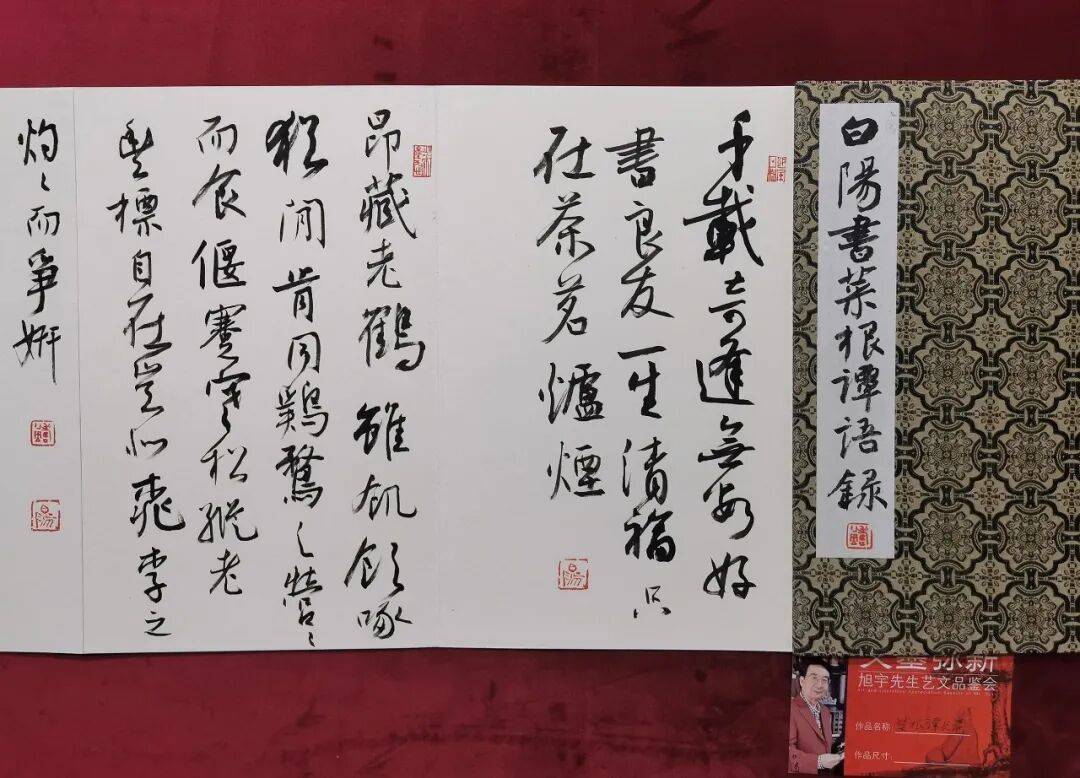 白陽書菜根譚語録
千載奇逢無如好
書良友一生清福只
在茶茗爐煙
昂藏老鶴雖飢飲啄
猶閒肯同鷄鶩之營〻
而食偃蹇寒松縱老
豐標自在豈似桃李之
灼〻而爭妍
弥新
旭宇先生艺文品鉴会
作品名称:
作品尺寸: